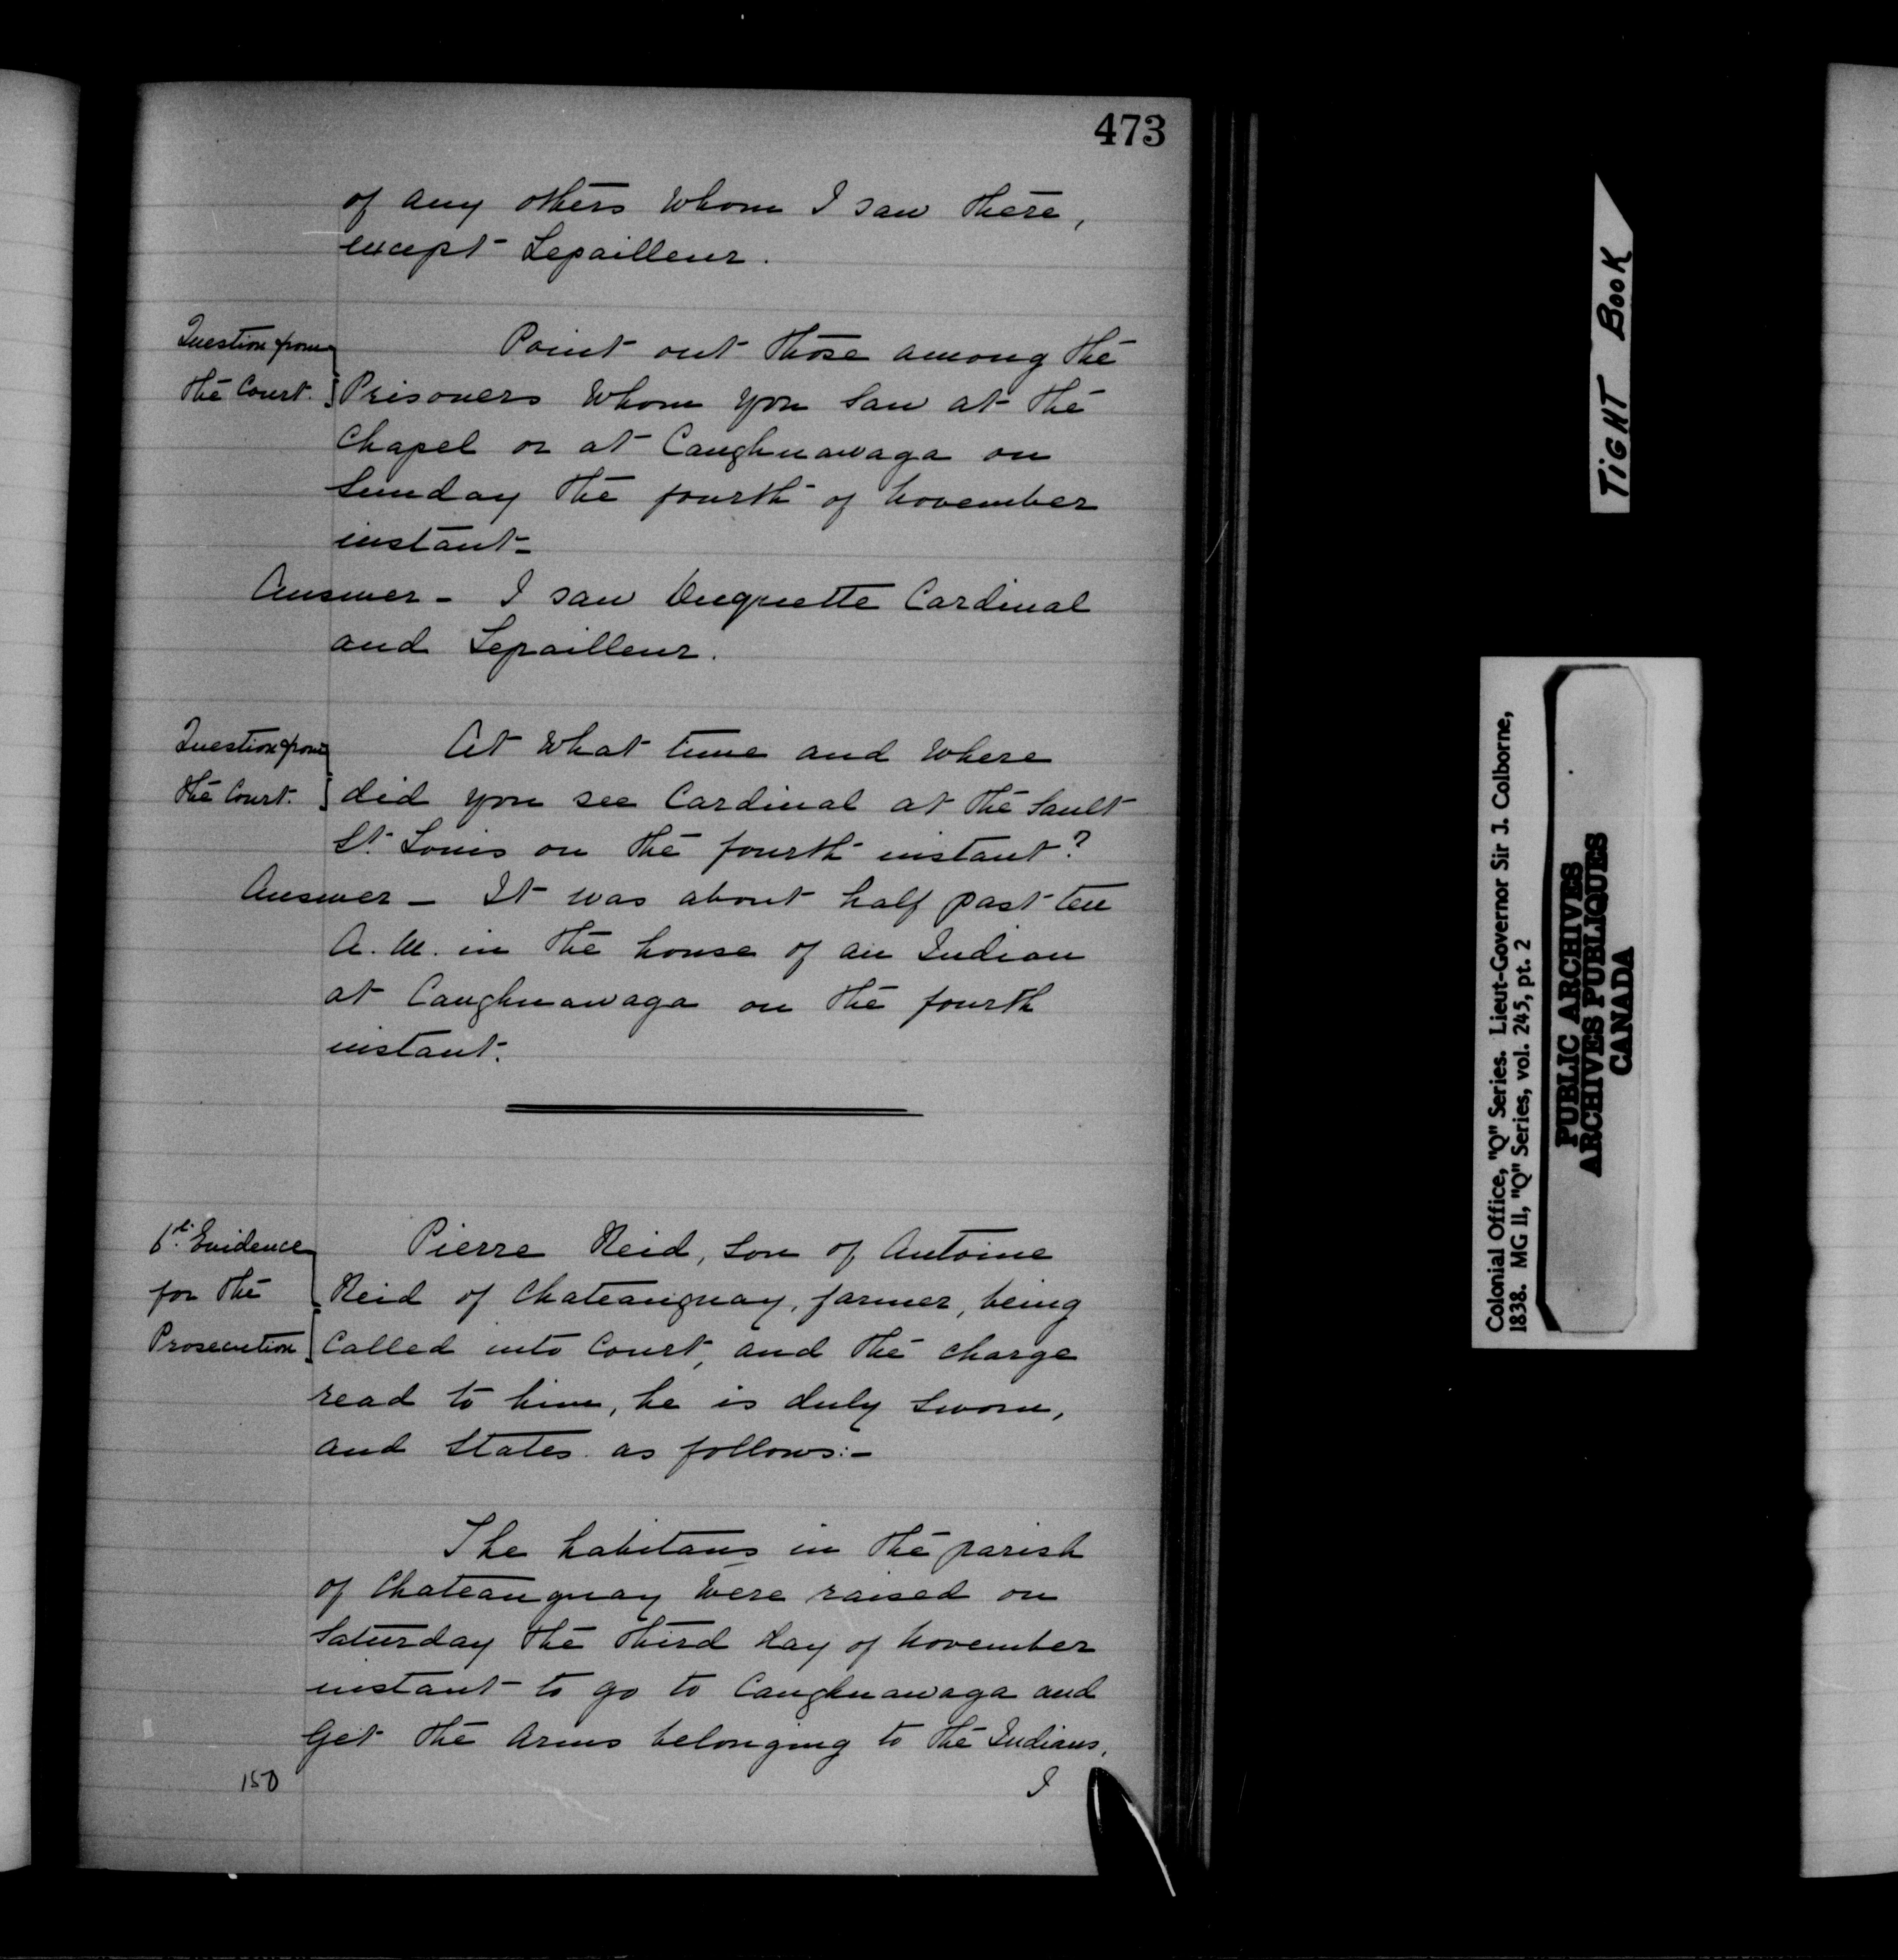 473
of any others whom I saw there,
except Lepailleur.
Question from
the Court.
Point out those among the
Prisoners whom you saw at the
Chapel or at Caughnawaga on
Sunday the fourth of November
instant-
Answer - I saw Duquette Cardinal
and Lepailleur.
Question from
the Court.
At what time and where
did you see Cardinal at the Sault
St. Louis on the fourth instant?
Answer - It was about half past ten
A.M. in the house of an Indian
at Caughnawaga on the fourth
instant.
6th Evidence
for the
Prosecution
Pierre Reid, son of Antoine
Reid of Chateauguay, farmer, being
called into Court, and the charge
read to him, he is duly sworn,
and states as follows:-
The habitans in the parish
of Chateauguay were raised on
Saturday the third day of November
instant to go to Caughnawaga and
get the arms belonging to the Indians,
150
I
TiGHT BOOK
Colonial Office, "Q" Series. Lieut-Governor Sir J. Colborne,
1838. MG 11, "Q" Series, vol. 245, pt. 2
PUBLIC ARCHIVES
ARCHIVES PUBLIQUES
CANADA